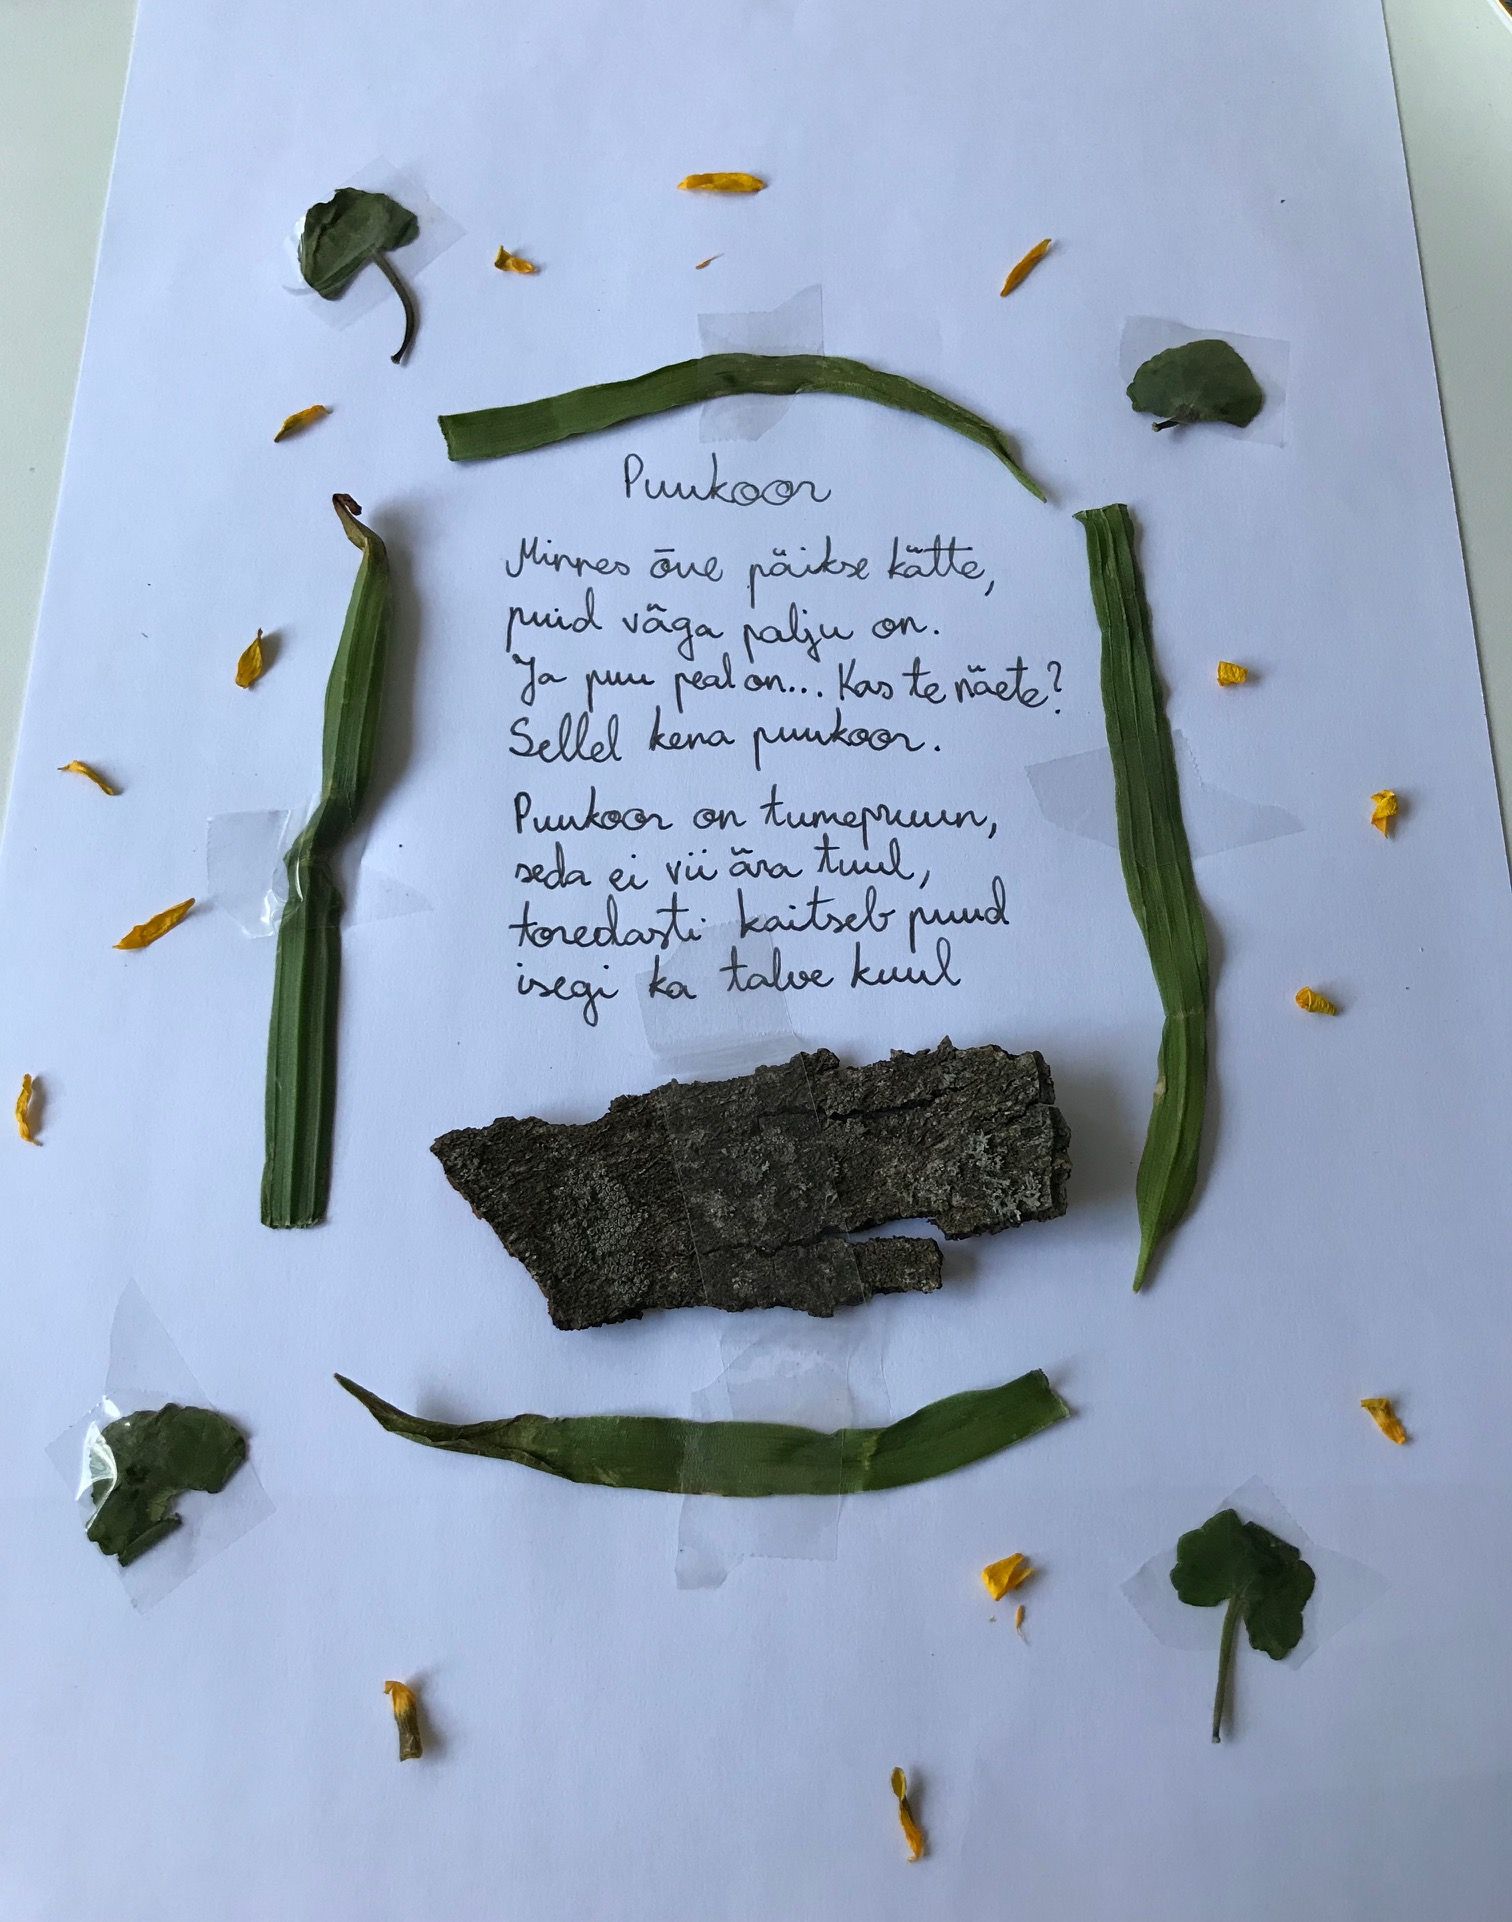 Puukoor
Minnes õue päikse kätte,
puid väga palju on.
Ja puu peal on... Kas te näete?
Sellel kena puukoor.
Puukoor on tumepruun,
seda ei vii ära tuul,
toredasti kaitseb puud
isegi ka talve kuul